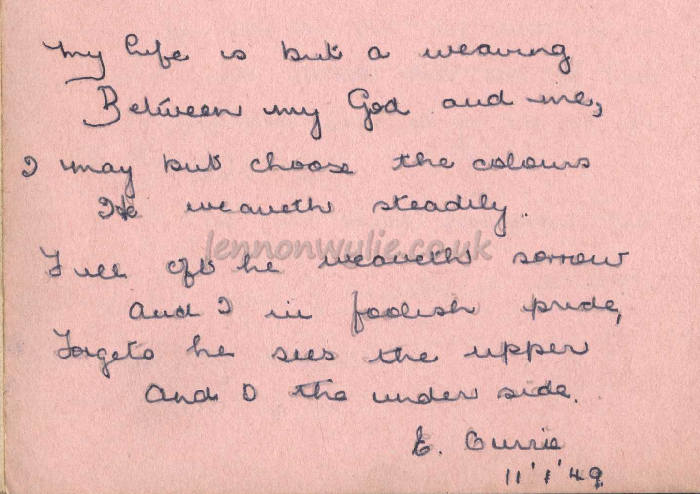 My life is but a weaving
Between my God and me,
I may but choose the colours
He weaveth steadily.
Full oft he weaveth sorrow
And I in foolish pride,
Forgets he sees the upper
And I the under side.
E. Currie
11'1'49
lennonwylie.co.uk